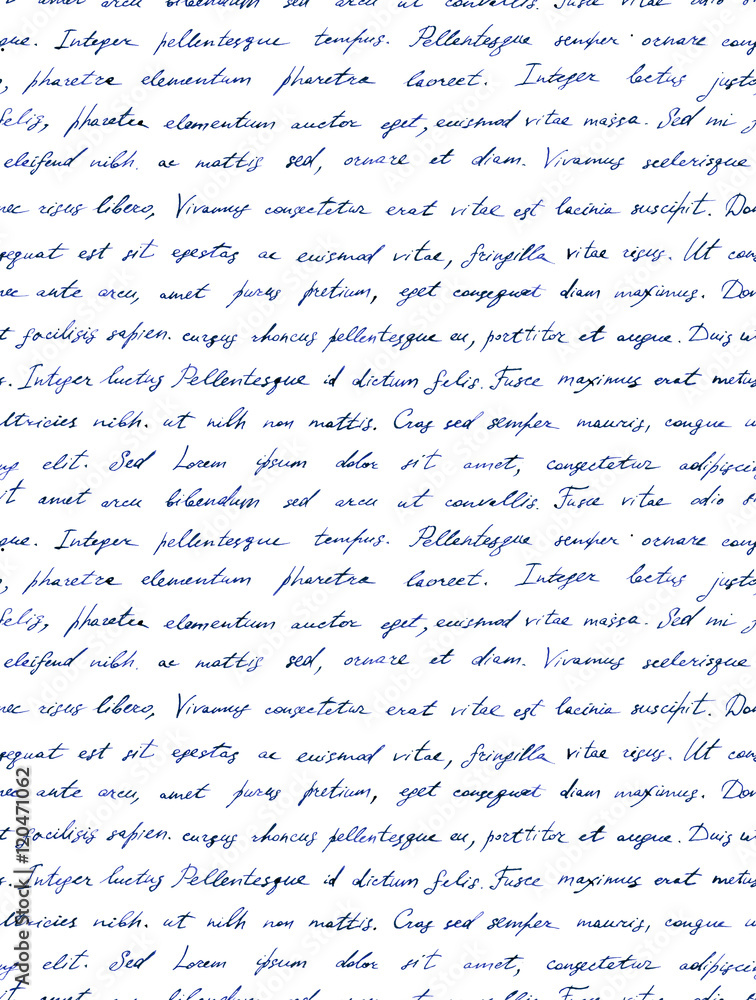 amet arcu bibendum sed arcu ut convallis. Fusce vitae odio
que. Integer pellentesque tempus. Pellentesque semper ornare cong
, pharetra elementum pharetra laoreet. Integer lectus justo
felis, pharetra elementum auctor eget, euismod vitae massa. Sed mi
eleifend nibh. ac mattis sed, ornare et diam. Vivamus scelerisque
nec risus libero, Vivamus consectetur erat vitae est lacinia suscipit. Don
sequat est sit egestas ac euismod vitae, fringilla vitae risus. Ut con
nec ante arcu, amet purus pretium, eget consequat diam maximus. Don
t facilisis sapien. cursus rhoncus pellentesque eu, porttitor et augue. Duis u
s. Integer luctus Pellentesque id dictum felis. Fusce maximus erat metus
ltricies nibh. ut nibh non mattis. Cras sed semper mauris, congue u
ng elit. Sed Lorem ipsum dolor sit amet, consectetur adipiscin
it amet arcu bibendum sed arcu ut convallis. Fusce vitae odio si
que. Integer pellentesque tempus. Pellentesque semper ornare cong
, pharetra elementum pharetra laoreet. Integer lectus justo
felis, pharetra elementum auctor eget, euismod vitae massa. Sed mi
eleifend nibh. ac mattis sed, ornare et diam. Vivamus scelerisque
nec risus libero, Vivamus consectetur erat vitae est lacinia suscipit. Don
sequat est sit egestas ac euismod vitae, fringilla vitae risus. Ut con
nec ante arcu, amet purus pretium, eget consequat diam maximus. Don
t facilisis sapien. cursus rhoncus pellentesque eu, porttitor et augue. Duis u
s. Integer luctus Pellentesque id dictum felis. Fusce maximus erat metus
ltricies nibh. ut nibh non mattis. Cras sed semper mauris, congue u
ng elit. Sed Lorem ipsum dolor sit amet, consectetur adipiscing
it amet arcu bibendum sed arcu ut convallis. Fusce vitae odio
Adobe Stock | #120471062